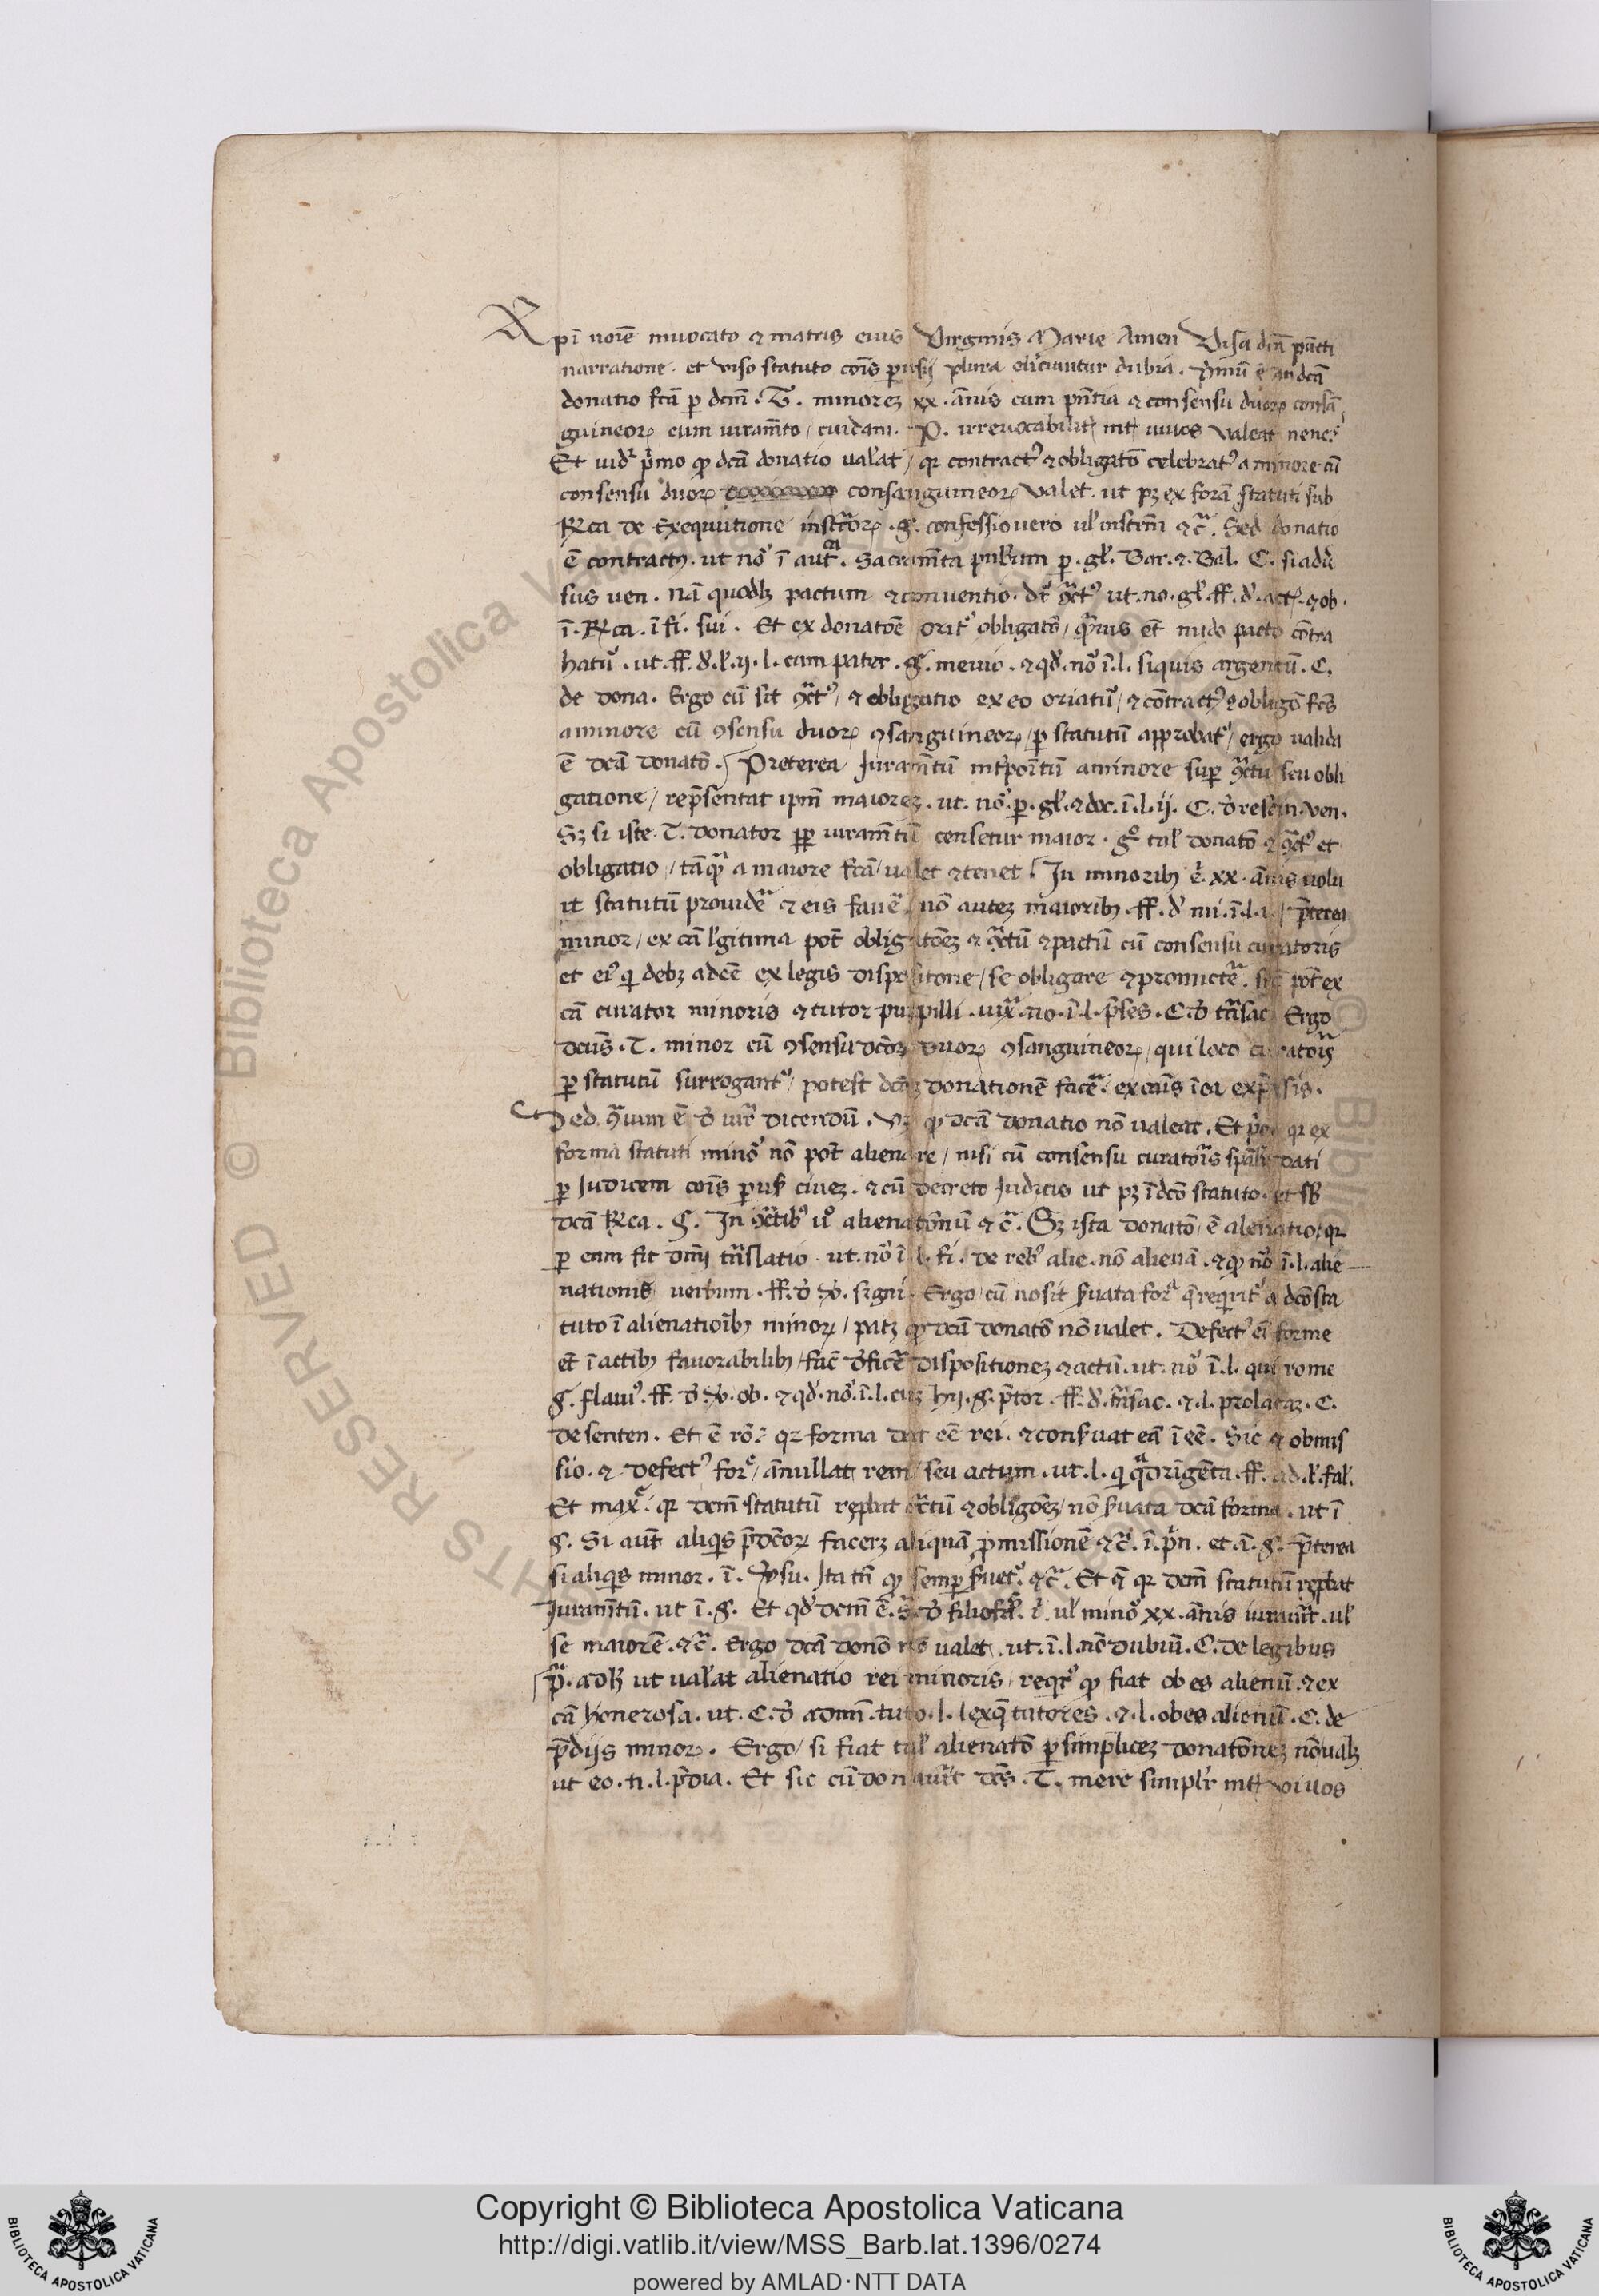 Xpi noīe invocato ⁊ matris eius Virginis Marie Amen Visa dcā pūcti
narratione . et viso statuto cōis perusij plura eliciuntur dubia . Primū ē an dcā
donatio fcā p dcm̄ . T . minorez xx . ānis cum pn̄tia ⁊ consensu duorꝝ consā
guineorꝝ cum iuram̄to / cuidam . P . irrevocabilit̄ int̄ vivos valeat nenc̄
Et vid̄r p̄mo ꝙ dcā donatio val̓at / qr contract᾽ ⁊ obligatō celebrat᾽ a minore cū
consensu duorꝝ consanguineorꝝ valet . ut pꝫ ex formā statuti sub
Rᷓca de Exequutione instr̄orꝝ . §. confessio vero ul̓ instrm̄ ⁊c̄ . Sed donatio
ē contract᾽ . ut nō ī aut̄ . Sacram̄ta pub̓um p . gl̓ . Bar . ⁊ . Bal . C . si adv̄
sus ven . nā quodlꝫ pactum ⁊ conventio . dr̄ ꝯct᾽ ut . no . gl̓ . ff . d̄ . act̄ . ⁊ ob .
ī . Rᷓca . ī fi . sui . Et ex donatōe orit᾽ obligatō / q̄vis et̄ nudo pacto cōtra
hatᷣ . ut . ff . d̄ . l̓ . ij . l . cum pater . §. mevio . ⁊ qd̄ . nō ī . l . siquis argentū . C .
de dona . Ergo cū sit ꝯct᾽ / ⁊ obligatio ex eo oriatᷣ / ⁊ cōtract᾽ ⁊ obligō fcs̄
a minore cū ꝯsensu duorꝝ ꝯsanguineorꝝ / p statutū approbatᷣ / ergo valida
ē dcā donatō . Preterea Juram̄tū int̄poītū a minore sup ꝯctu seu obli
gatione / rep̄sentat ipm̄ maiorez . ut . nō . p . gl̓ . ⁊ doc . ī . l . ij . C . d̄ rescin . ven .
Sꝫ si iste . T . donator pp iuram̄tū censetur maior . gͦ tal̓ donatō ⁊ ꝯct᾽ et
obligatio / tāq̄ a maiore fcā / valet ⁊ tenet . In minoribꝫ ē . xx . ānis volu
it statutū providē ⁊ eis favē . nō autez maioribꝫ . ff . d̄ mi . ī . l . / p̄terea
minor / ex cā l̓gitima pot̄ obligatōez ⁊ ꝯctū ⁊ pactū cū consensu curatoris
et ei᾽ qi debꝫ adcē ex legis dispositione / se obligare ⁊ promictē . sic pot̄ ex
cā curator minoris ⁊ tutor pupilli . no . ī . l . p̄ses . C . d̄ trāsac . Ergo
dcūs . T . minor cū ꝯsensu dcōrꝝ duorꝝ ꝯsanguineorꝝ / qui loco curatoris
p statutū surrogantᷣ / potest dcāꝫ donationē facē . ex cāis ī ea exp̄ssis .
Sed ꝯ̄ium ē d̄ iur̄ dicendū . Vꝫ ꝙ dcā donatio nō valeat . Et p̄o qr ex
forma statuti minor nō pot̄ alienare / nisi cū consensu curatoris spāl̓r dati
p Judicem cōis perus̓ civez . ⁊ cū decreto Judicis ut pꝫ ī dcō statuto et sꝫ
dcā Rᷓca . §. In ꝯctibꝫ v͛o alienatōnū ⁊ c̄ . Sꝫ ista donatō ē alienatio / qr
p eam fit dn̄ij trāslatio . ut . nō ī l . fi . de rebꝫ alie . nō alienā . ⁊ ꝙ nō ī . l . alie
nationis verbum . ff . d̄ v̄b . signi . Ergo cū nō sit s̓vata for̄ q̄ reqritᷣ a dcō sta
tuto ī alienatioībꝫ minorꝝ / patꝫ ꝙ dcā donatō nō valet . Defect᾽ eī forme
et̄ ī actibꝫ favorabilibꝫ / fac̄ d̄ficē dispositionez ⁊ actū . ut . nō ī . l . qui rome
§. flavi᾽ . ff . d̄ v̄b . ob . ⁊ qd̄ . nō . ī . l . cum hij . §. p̄tor . ff . d̄ . trāsac . ⁊ . l . prolatam . C .
de senten . Et ē rō : qꝛ forma dat eē rei . ⁊ cons̓vat eā ī eē . Sic ⁊ obmis
sio . ⁊ defect᾽ forᵉ / ānullat rem / seu actum . ut . l . qi q̄dringenta . ff . ad . l̓ . fal̓ .
Et maxᵉ . qr dcm̄ statutū rep̄bat ꝯctū ⁊ obligōez / nō s̓vata dcā forma . ut ī
§. Si aut̄ aliqis p̄dcōrꝝ facerꝫ aliquā p̄missionē ⁊c̄ . ī . p̄n . et ā . §. p̄terea
si aliqis minor . ī . v̄su . Ita tn̄ ꝙ semp s̓vetᷣ . ⁊c̄ . Et ꝯ̄ qr dcm̄ statutū rep̄bat
Juram̄tū . ut ī . §. Et qd̄ dcm̄ ē . s̄ . d̄ filiofᵃ . ul̓ minoᷣ xx . ānis iuraūit . ul̓
se maiorē . ⁊c̄ . Ergo dcā donō nō valet . ut . ī . l . nō dubiū . C . de legibus
p̄ . adh̄ ut val̓at alienatio rei minoris / reqritᷣ ꝙ fiat ob es alienū . ⁊ ex
cā honerosa . ut . C . d̄ admī . tuto . l . lex q̄ tutores . ⁊ . l . ob es alienū . C . de
p̄dijs minorꝝ . Ergo / si fiat tal̓ alienatō p simplicez donatōnez nō valꝫ
ut eo . ti . l . p̄dia . Et sic cū donavit dcs̄ . T . mere simpl̓r int̄ vivos
Copyright © Biblioteca Apostolica Vaticana
http://digi.vatlib.it/view/MSS_Barb.lat.1396/0274
powered by AMLAD·NTT DATA